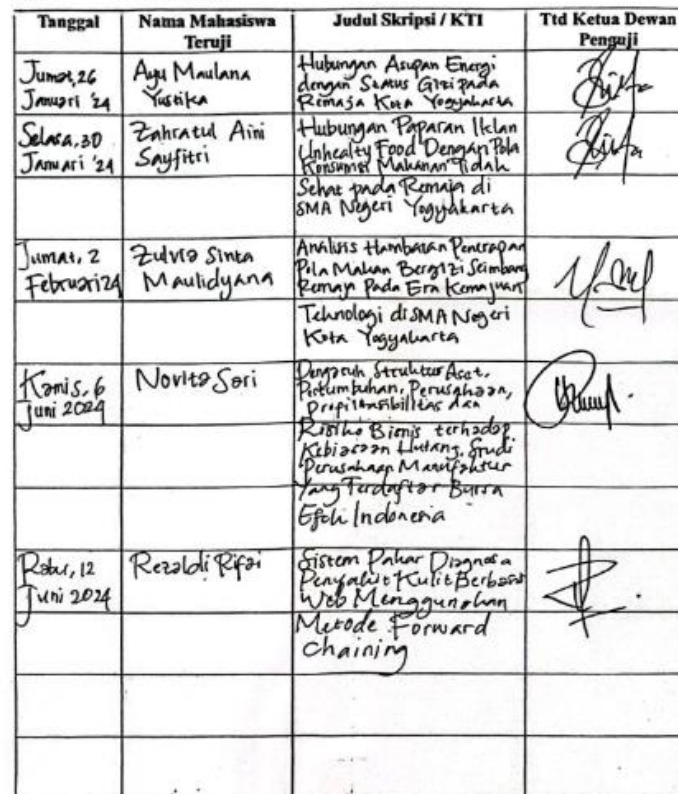 Tanggal
Nama Mahasiswa
Teruji
Judul Skripsi / KTI
Ttd Ketua Dewan
Penguji
Jumat, 26
Januari '24
Ayu Maulana
Yustika
Hubungan Asupan Energi
dengan Status Gizi pada
Remaja Kota Yogyakarta
Selasa, 30
Januari '24
Zahratul Aini
Sayfitri
Hubungan Paparan Iklan
Unhealty Food Dengan Pola
Konsumsi Makanan Tidak
Sehat pada Remaja di
SMA Negeri Yogyakarta
Jumat, 2
Februari 24
Zulvia Sinta
Maulidyana
Analisis Hambatan Penerapan
Pola Makan Bergizi Seimbang
Remaja Pada Era Kemajuan
Teknologi di SMA Negeri
Kota Yogyakarta
Kamis, 6
Juni 2024
Novita Sari
Pengaruh Struktur Aset,
Pertumbuhan, Perusahaan,
dan
Risiko Bisnis terhadap
Kebiasaan Hutang, Studi
Perusahaan Manufaktur
Yang Terdaftar Bursa
Efek Indonesia
Rabu, 12
Juni 2024
Rezaldi Rifai
Sistem Pakar Diagnosa
Penyakit Kulit Berbasis
Web Menggunakan
Metode Forward
Chaining